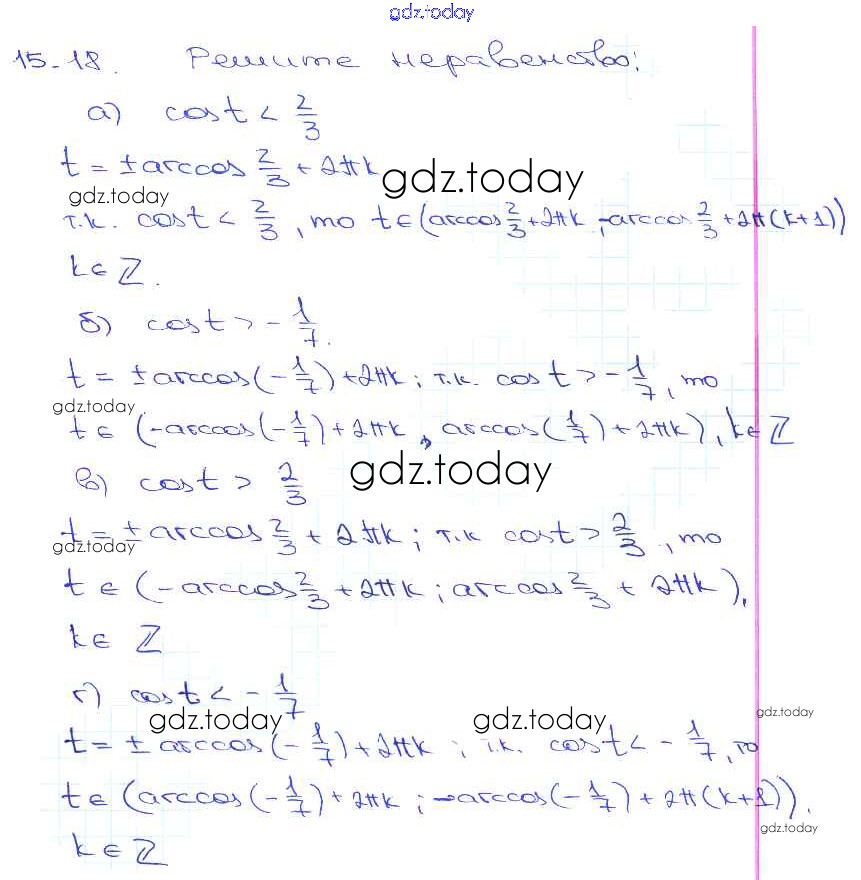 gdz.today
15-18. Решите неравенство:
а) cos t < 2/3
t = ± arccos 2/3 + 2πk
gdz.today
gdz.today
т.к. cos t < 2/3, то t ∈ (arccos 2/3 + 2πk; -arccos 2/3 + 2π(k+1))
k ∈ ℤ.
б) cos t > -1/7.
t = ± arccos(-1/7) + 2πk; т.к. cos t > -1/7, то
gdz.today
t ∈ (-arccos(-1/7) + 2πk, arccos(1/7) + 2πk), k ∈ ℤ
в) cos t > 2/3
gdz.today
t = ± arccos 2/3 + 2πk; т.к cos t > 2/3, то
gdz.today
t ∈ (-arccos 2/3 + 2πk; arccos 2/3 + 2πk),
k ∈ ℤ
г) cos t < -1/7
gdz.today
gdz.today
gdz.today
t = ± arccos(-1/7) + 2πk; т.к. cos t < -1/7, то
t ∈ (arccos(-1/7) + 2πk; -arccos(-1/7) + 2π(k+1)).
gdz.today
k ∈ ℤ